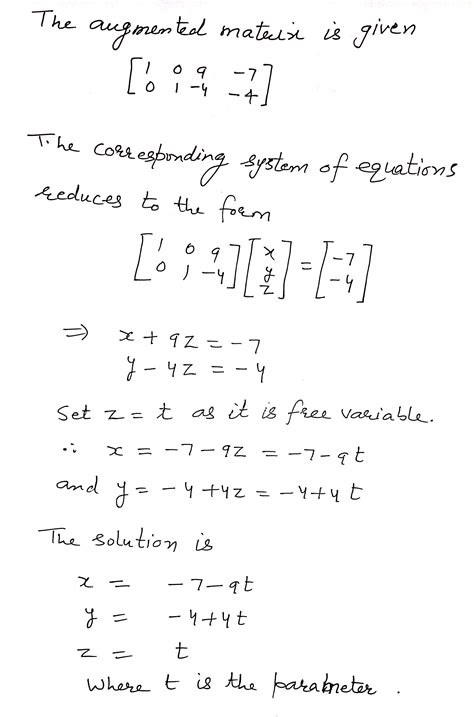 The augmented matrix is given
[1 0 9 -7
0 1 -4 -4]
The corresponding system of equations
reduces to the form
[1 0 9
0 1 -4] [x
y
z] = [-7
-4]
⇒ x + 9z = -7
y - 4z = -4
Set z = t as it is free variable.
∴ x = -7-9z = -7-9t
and y = -4+4z = -4+4t
The solution is
x = -7-9t
y = -4+4t
z = t
Where t is the parameter.